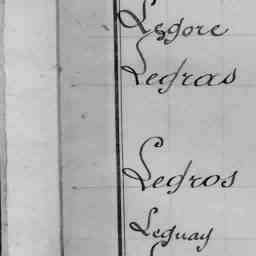 Legore
Legras
Legros
Leguay